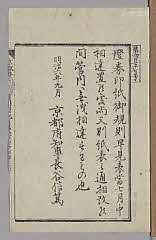 證券印紙御規則早見表當七月中
相達置候処尚又別紙表之通相改候
間管内無洩相達するもの也
明治六年九月
京都府知事長谷信篤